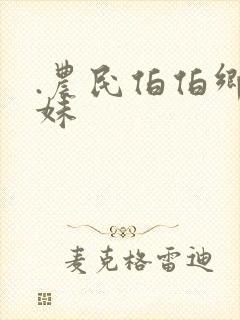 .農民伯伯鄉
妹
麦克格雷迪